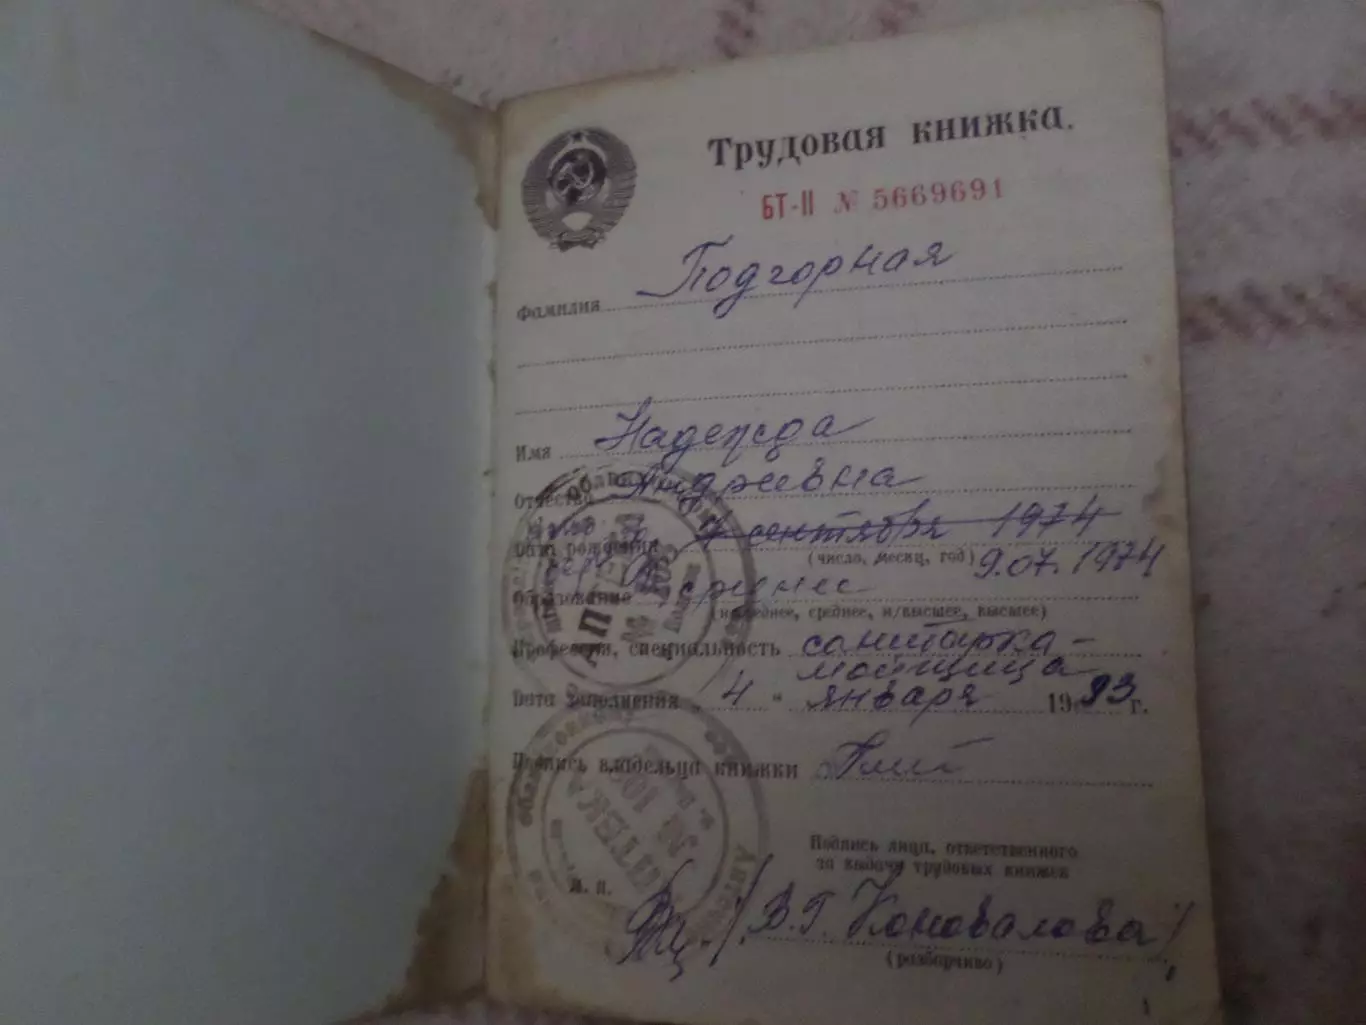 Трудовая книжка.
БТ-II № 5669691
Фамилия Подгорная
Имя Надежда
Отчество Андревна
Дата рождения 4 сентября 1974
(число, месяц, год) 9.07.1974
Образование среднее
(н/среднее, среднее, н/высшее, высшее)
Профессия, специальность санитарка-
мойщица
Дата заполнения „4“ января 1993 г.
Подпись владельца книжки
Подпись лица, ответственного
за выдачу трудовых книжек
М. П.
/В.Г. Коновалова/
(разборчиво)
АПТЕКА
№ 103
АПТЕКА